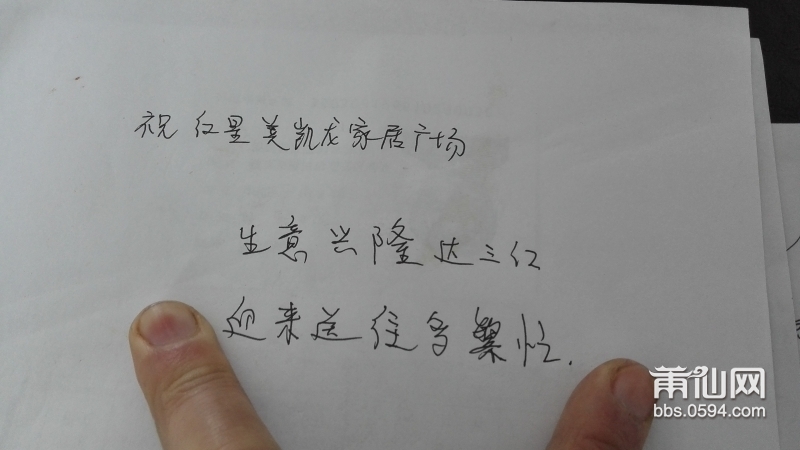 祝 红星美凯龙家居广场
生意兴隆达三江
迎来送往多繁忙.
莆仙网
bbs.0594.com